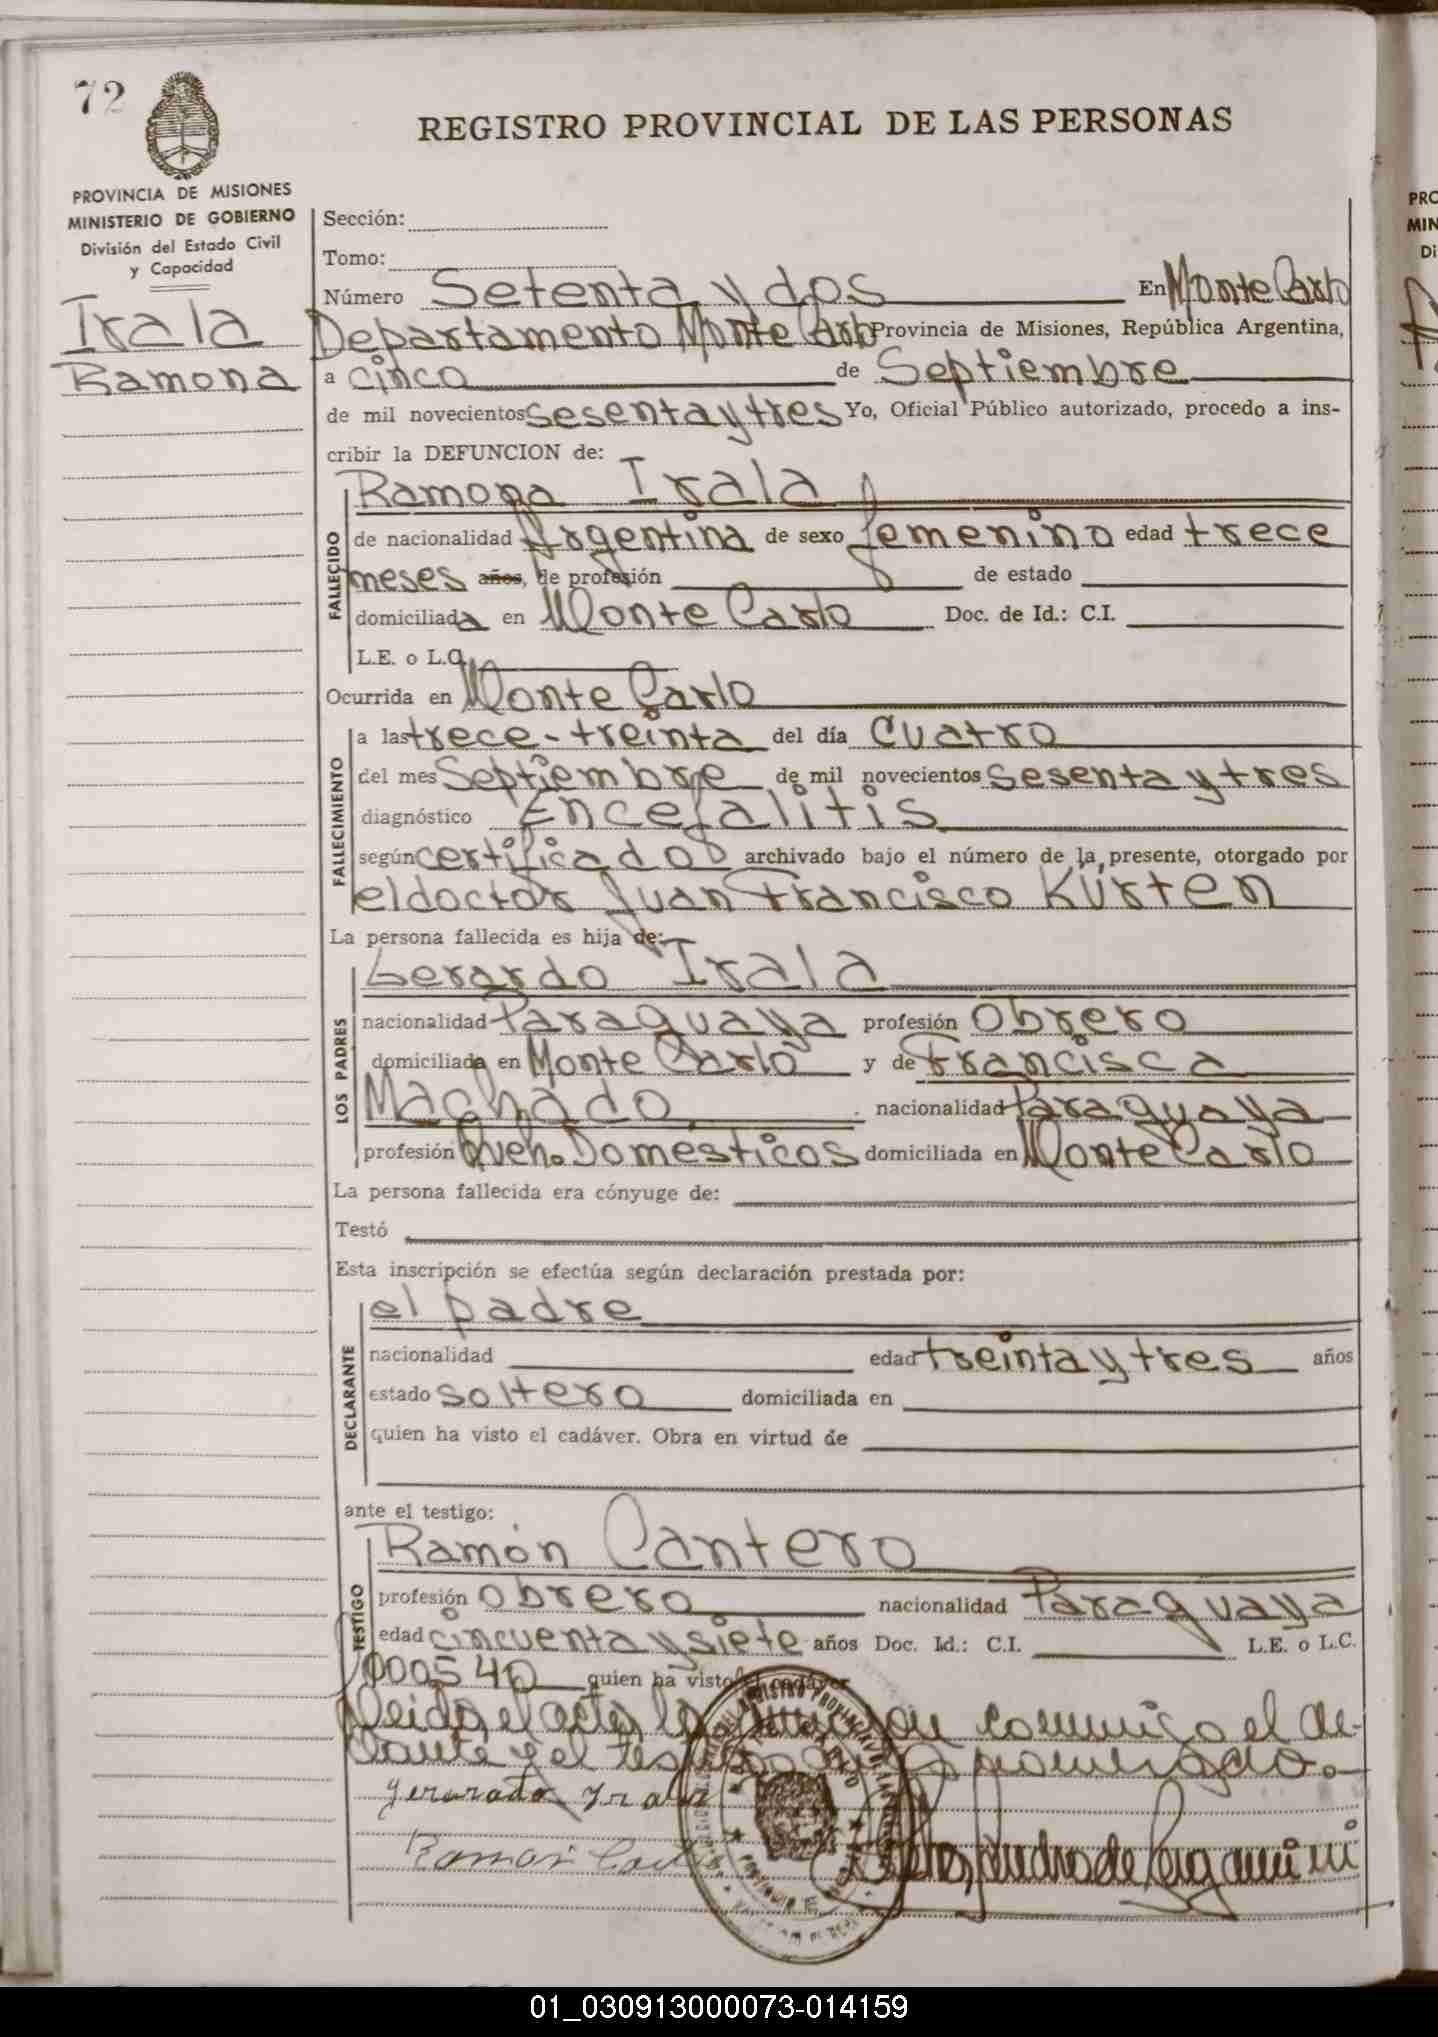 72
REGISTRO PROVINCIAL DE LAS PERSONAS
PROVINCIA DE MISIONES
MINISTERIO DE GOBIERNO
División del Estado Civil
y Capacidad
Irala
Ramona
Sección:
Tomo:
Número Setenta y dos En Monte Carlo
Departamento Monte Carlo Provincia de Misiones, República Argentina,
a cinco de Septiembre
de mil novecientos sesenta y tres Yo, Oficial Público autorizado, procedo a ins-
cribir la DEFUNCION de:
FALLECIDO
Ramona Irala
de nacionalidad Argentina de sexo femenino edad trece
meses años, de profesión de estado
domiciliada en Monte Carlo Doc. de Id.: C.I.
L.E. o L.C.
Ocurrida en Monte Carlo
FALLECIMIENTO
a las trece-treinta del día cuatro
del mes Septiembre de mil novecientos sesenta y tres
diagnóstico Encefalitis
según certificado archivado bajo el número de la presente, otorgado por
el doctor Juan Francisco Kürten
La persona fallecida es hija de:
LOS PADRES
Gerardo Irala
nacionalidad Paraguaya profesión Obrero
domiciliada en Monte Carlo y de Francisca
Machado nacionalidad Paraguaya
profesión Queh. Domesticos domiciliada en Monte Carlo
La persona fallecida era cónyuge de:
Testó
Esta inscripción se efectúa según declaración prestada por:
DECLARANTE
el padre
nacionalidad edad treinta y tres años
estado soltero domiciliada en
quien ha visto el cadáver. Obra en virtud de
ante el testigo:
TESTIGO
Ramón Cantero
profesión obrero nacionalidad Paraguaya
edad cincuenta y siete años Doc. Id.: C.I. L.E. o L.C.
000540 quien ha visto el cadáver
Leida el acta la conmigo el de-
y el
Gerardo Irala
Ramon
01_030913000073-014159